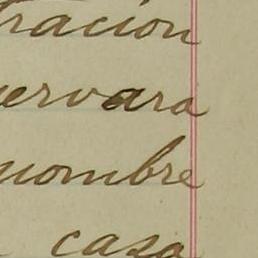 racion
ervara
nombre
casa